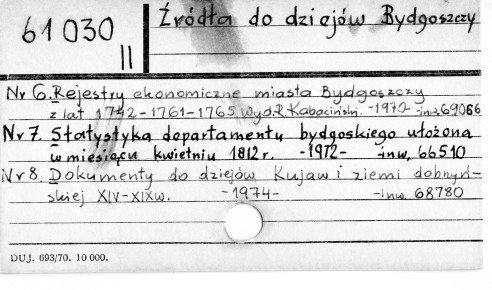 61030 II
Źródła do dziejów Bydgoszczy
Nr 6. Rejestry ekonomiczne miasta Bydgoszczy
z lat 1742-1761-1765 wyd. R. Kabaciński. -1970- inw. 69066
Nr 7. Statystyka departamentu bydgoskiego ułożona
w miesiącu kwietniu 1812 r. -1972- inw. 66510
Nr 8. Dokumenty do dziejów Kujaw i ziemi dobrzyń-
skiej XIV-XIX w. -1974- -inw. 68780
DUJ. 693/70. 10 000.